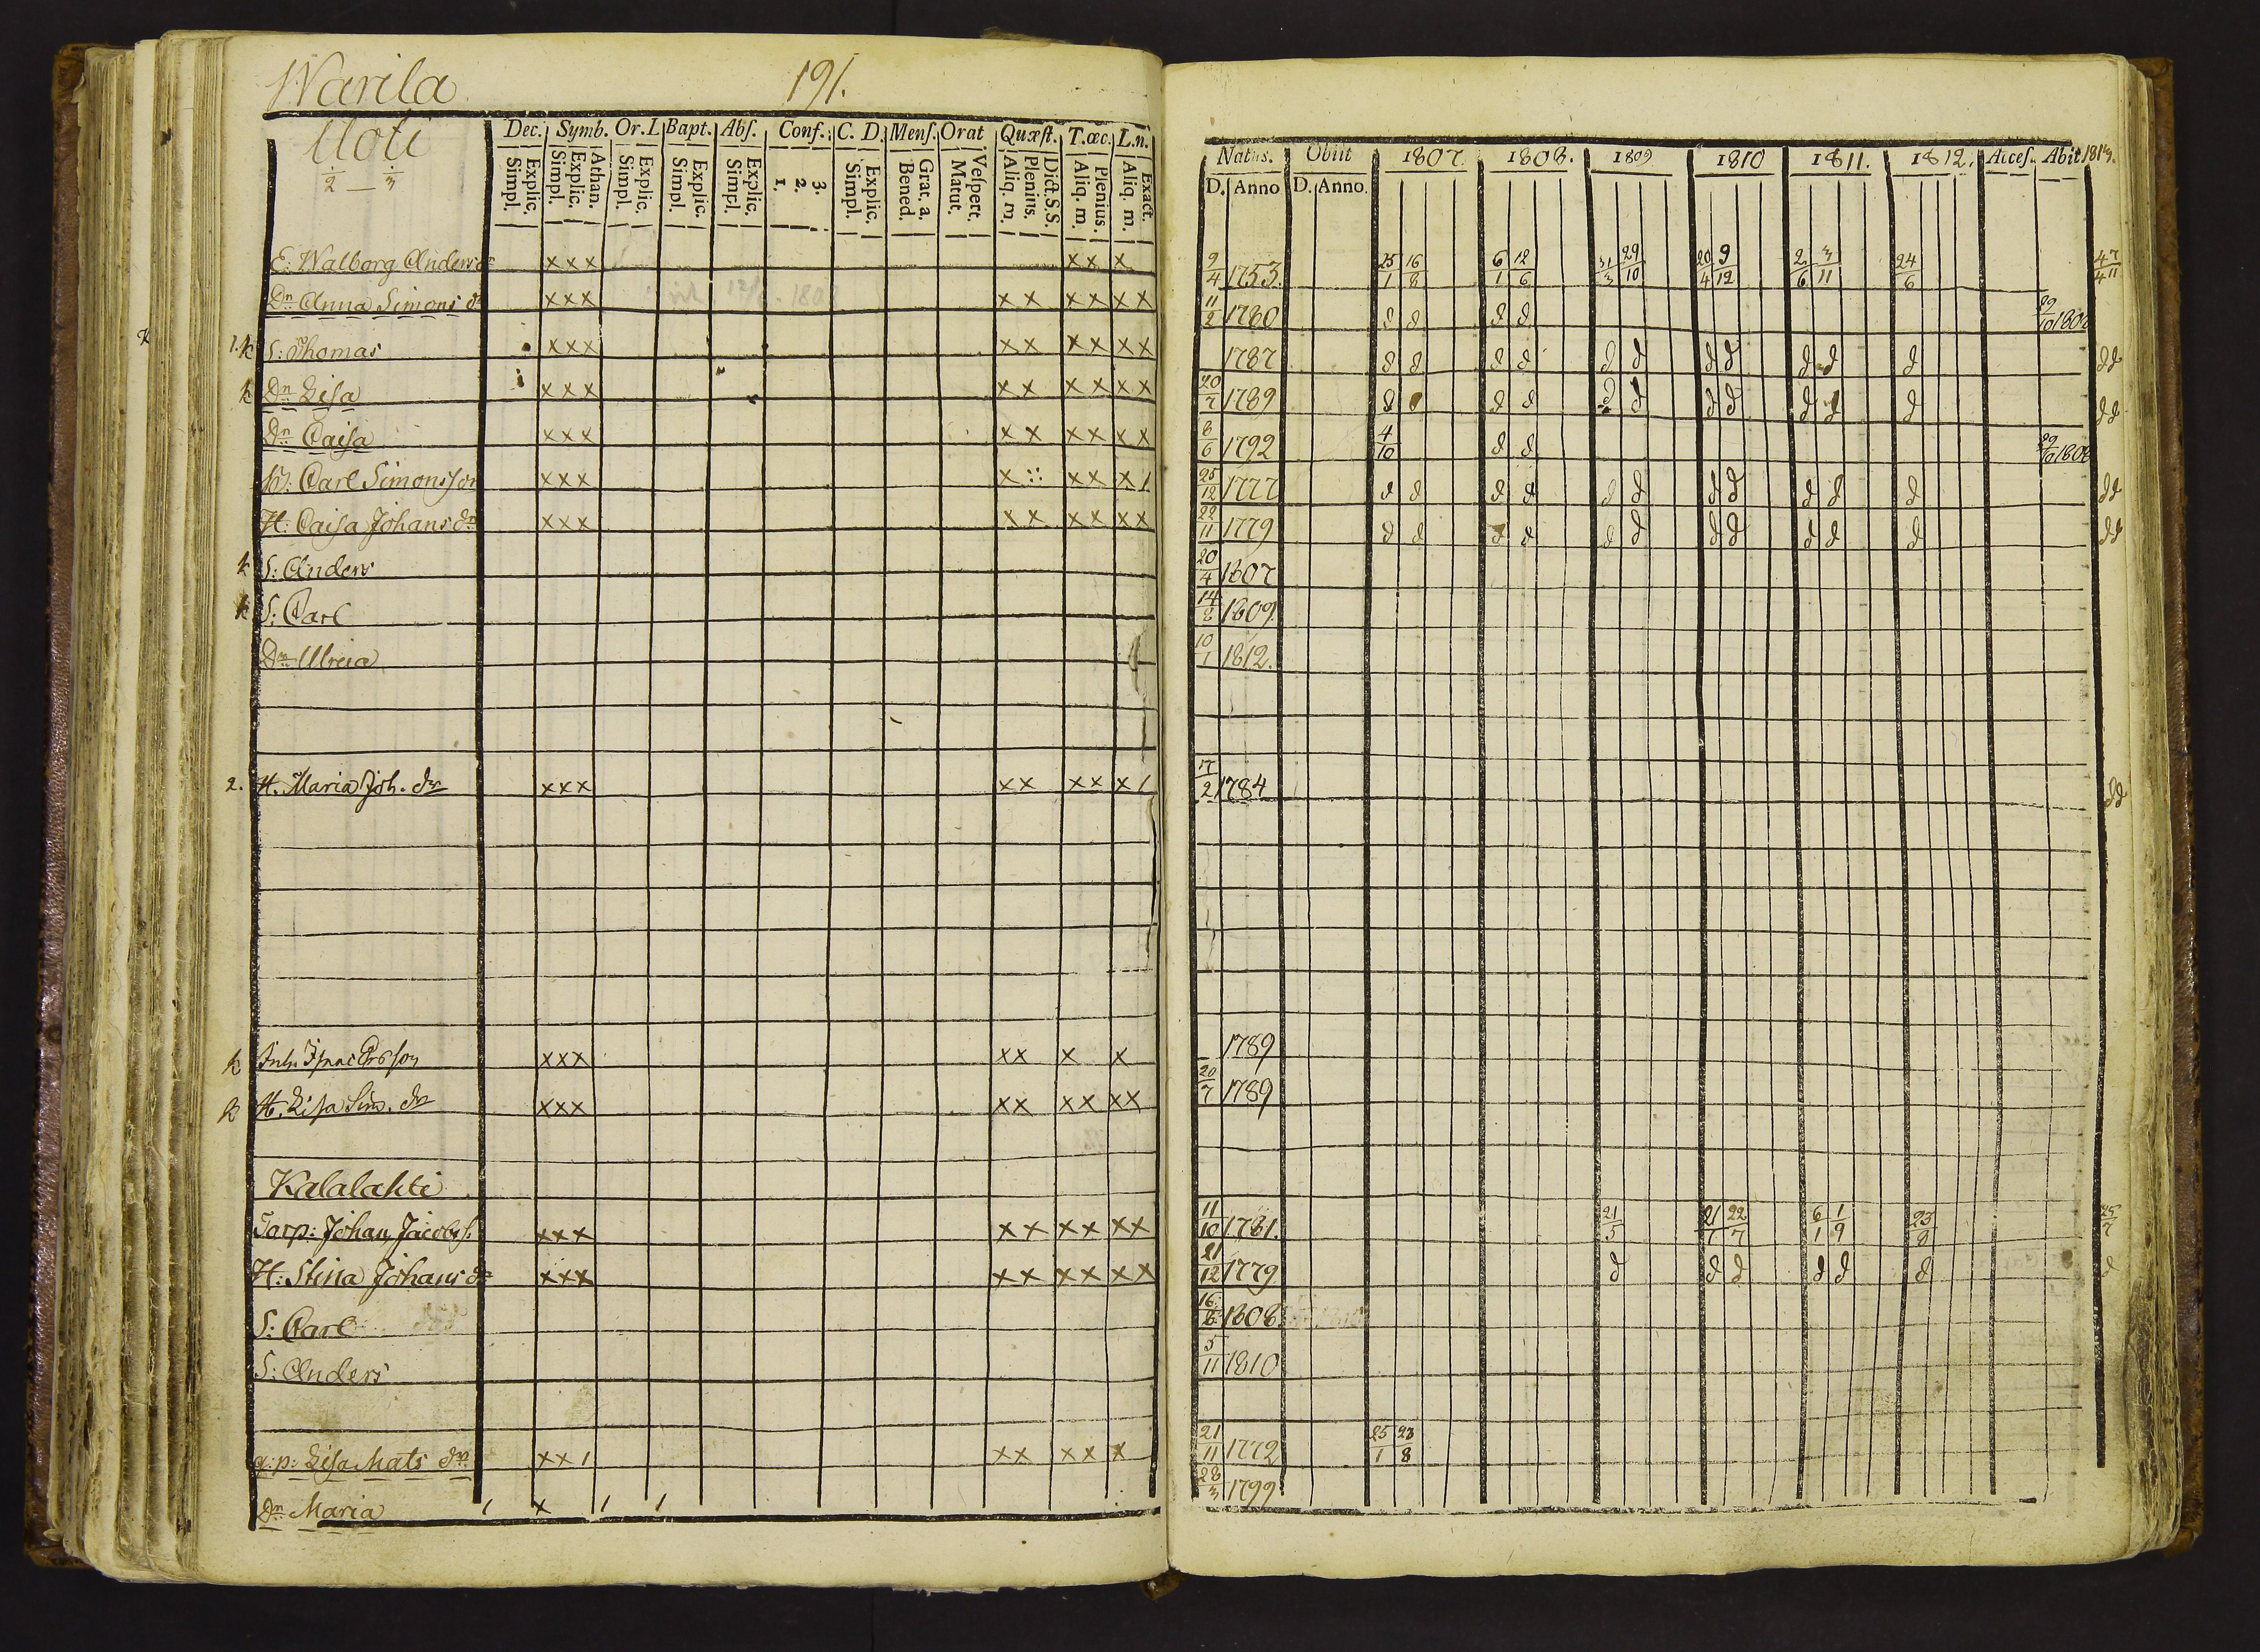 Warila 191.
Uoti
2 – 3
Dec. Symb. Or. L Bapt. Abſ. Conf. C. D. Menſ. Orat Quæſt. T. œc. L. n.
Simpl. Explic. Simpl. Explic. Athan. Simpl. Explic. Simpl. Explic. Simpl. Explic. 1. 2. 3. Simpl. Explic. Bened. Grat. a. Matut. Veſpert. Aliq. m. Plenius. Dict. S.S. Aliq. m. Plenius. Aliq. m. Exact.
Natus. Obiit 1807. 1808. 1809 1810 1811. 1812. Acceſ. Abit 1813.
D. Anno D. Anno.
E: Walborg Anders dr xxx xx x 9/4 1753. 25/1 16/8 6/1 12/6 31/3 29/10 20/4 9/12 2/6 3/11 24/6 4/4 7/11
Dn Anna Simons dr xxx xx xx xx 11/2 1780 d d d d 29/10 1808
1. k S: Thomas xxx xx xx xx 1787 d d d d d d d d d d d dd
k Dn Liſa xxx xx xx xx 20/7 1789 d d d d d d d d d d d dd
Dn Caiſa xxx xx xx xx 8/6 1792 4/10 d d 29/10 1808
Carl Simonsſon xxx x :: xx x / 25/12 1777 d d d d d d d d d d d dd
H: Caiſa Johans dr xxx xx xx xx 22/11 1779 d d d d d d d d d d d dd
k S: Anders 20/4 1807
k S: Carl 14/8 1809.
Dn Ulrica 10/1 1812.
2. H. Maria Joh. dr xxx xx xx x / 17/2 1784 dd
k Inh. Iſaac Ersſon xxx xx x x 1789
k H. Liſa Sim. dr xxx xx xx xx 20/7 1789
Kalalahti
Torp: Johan Jacobsſ. xxx xx xx xx 11/10 1781. 21/5 21/1 22/7 6/1 1/9 23/8 25/7
H: Stina Johans dr xxx xx xx xx 21/12 1779 d d d d d d d
S: Carl 16/8 1808
S: Anders 5/11 1810
q: p: Liſa Mats dr xx / xx xx x 21/11 1772 25/1 23/8
Dn Maria / x / / 28/3 1799